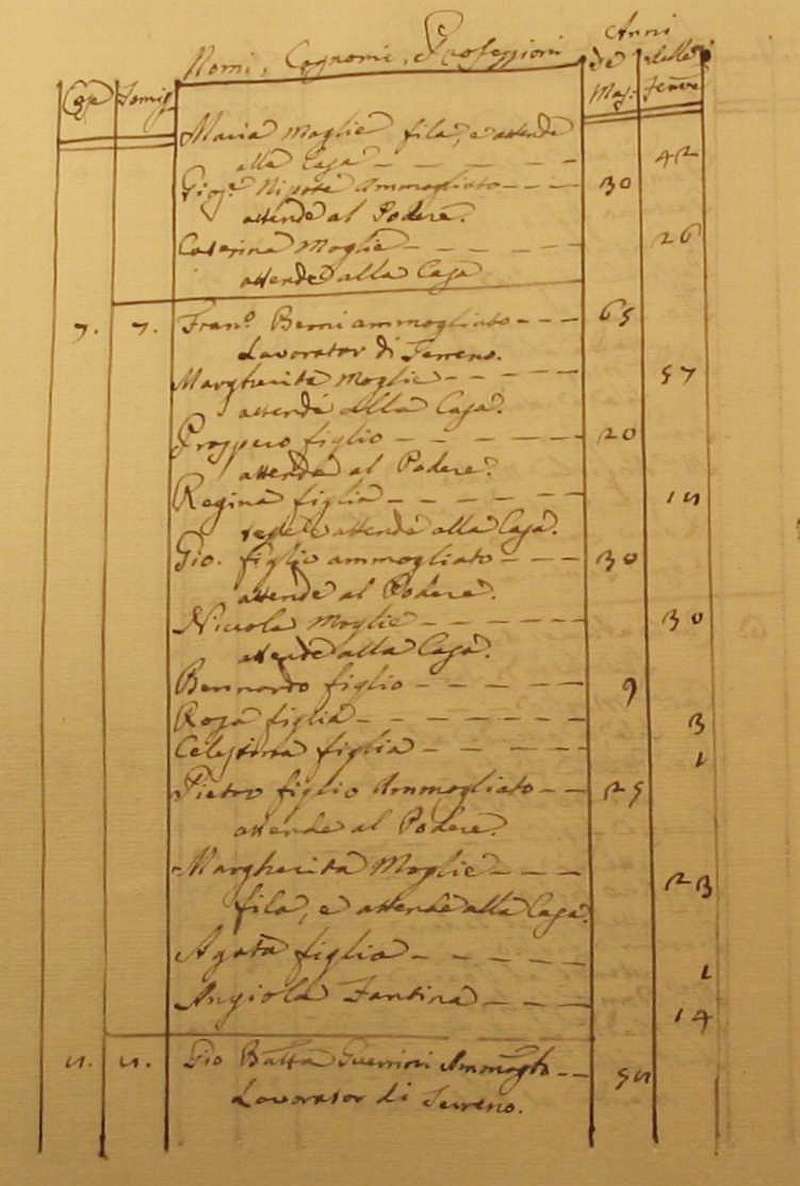 Nomi, Cognomi, e Professioni Anni
Case Famig. de Mas: delle Fem̃e
Maria Moglie fila, e attende
alla Casa 42
Gios.e Nipote Ammogliato 30
attende al Podere.
Caterina Moglie 26
attende alla Casa
7. 7. Fran.o Berni ammogliato 65
Lavorator di Terreno.
Margherita Moglie 57
attende alla Casa.
Prospero figlio 20
attende al Podere.
Regina figlia
attende alla Casa.
Gio. figlio ammogliato 30
attende al Podere.
Niccola Moglie 30
attende alla Casa.
Bernardo figlio 9
Rosa figlia 3
Celestina figlia 1
Pietro figlio Ammogliato 25
attende al Podere.
Margherita Moglie 23
fila, e attende alla Casa.
Agata figlia 1
Angiola Fantina 14
Gio Batta Guerrini Ammogto
Lavorator di Terreno.